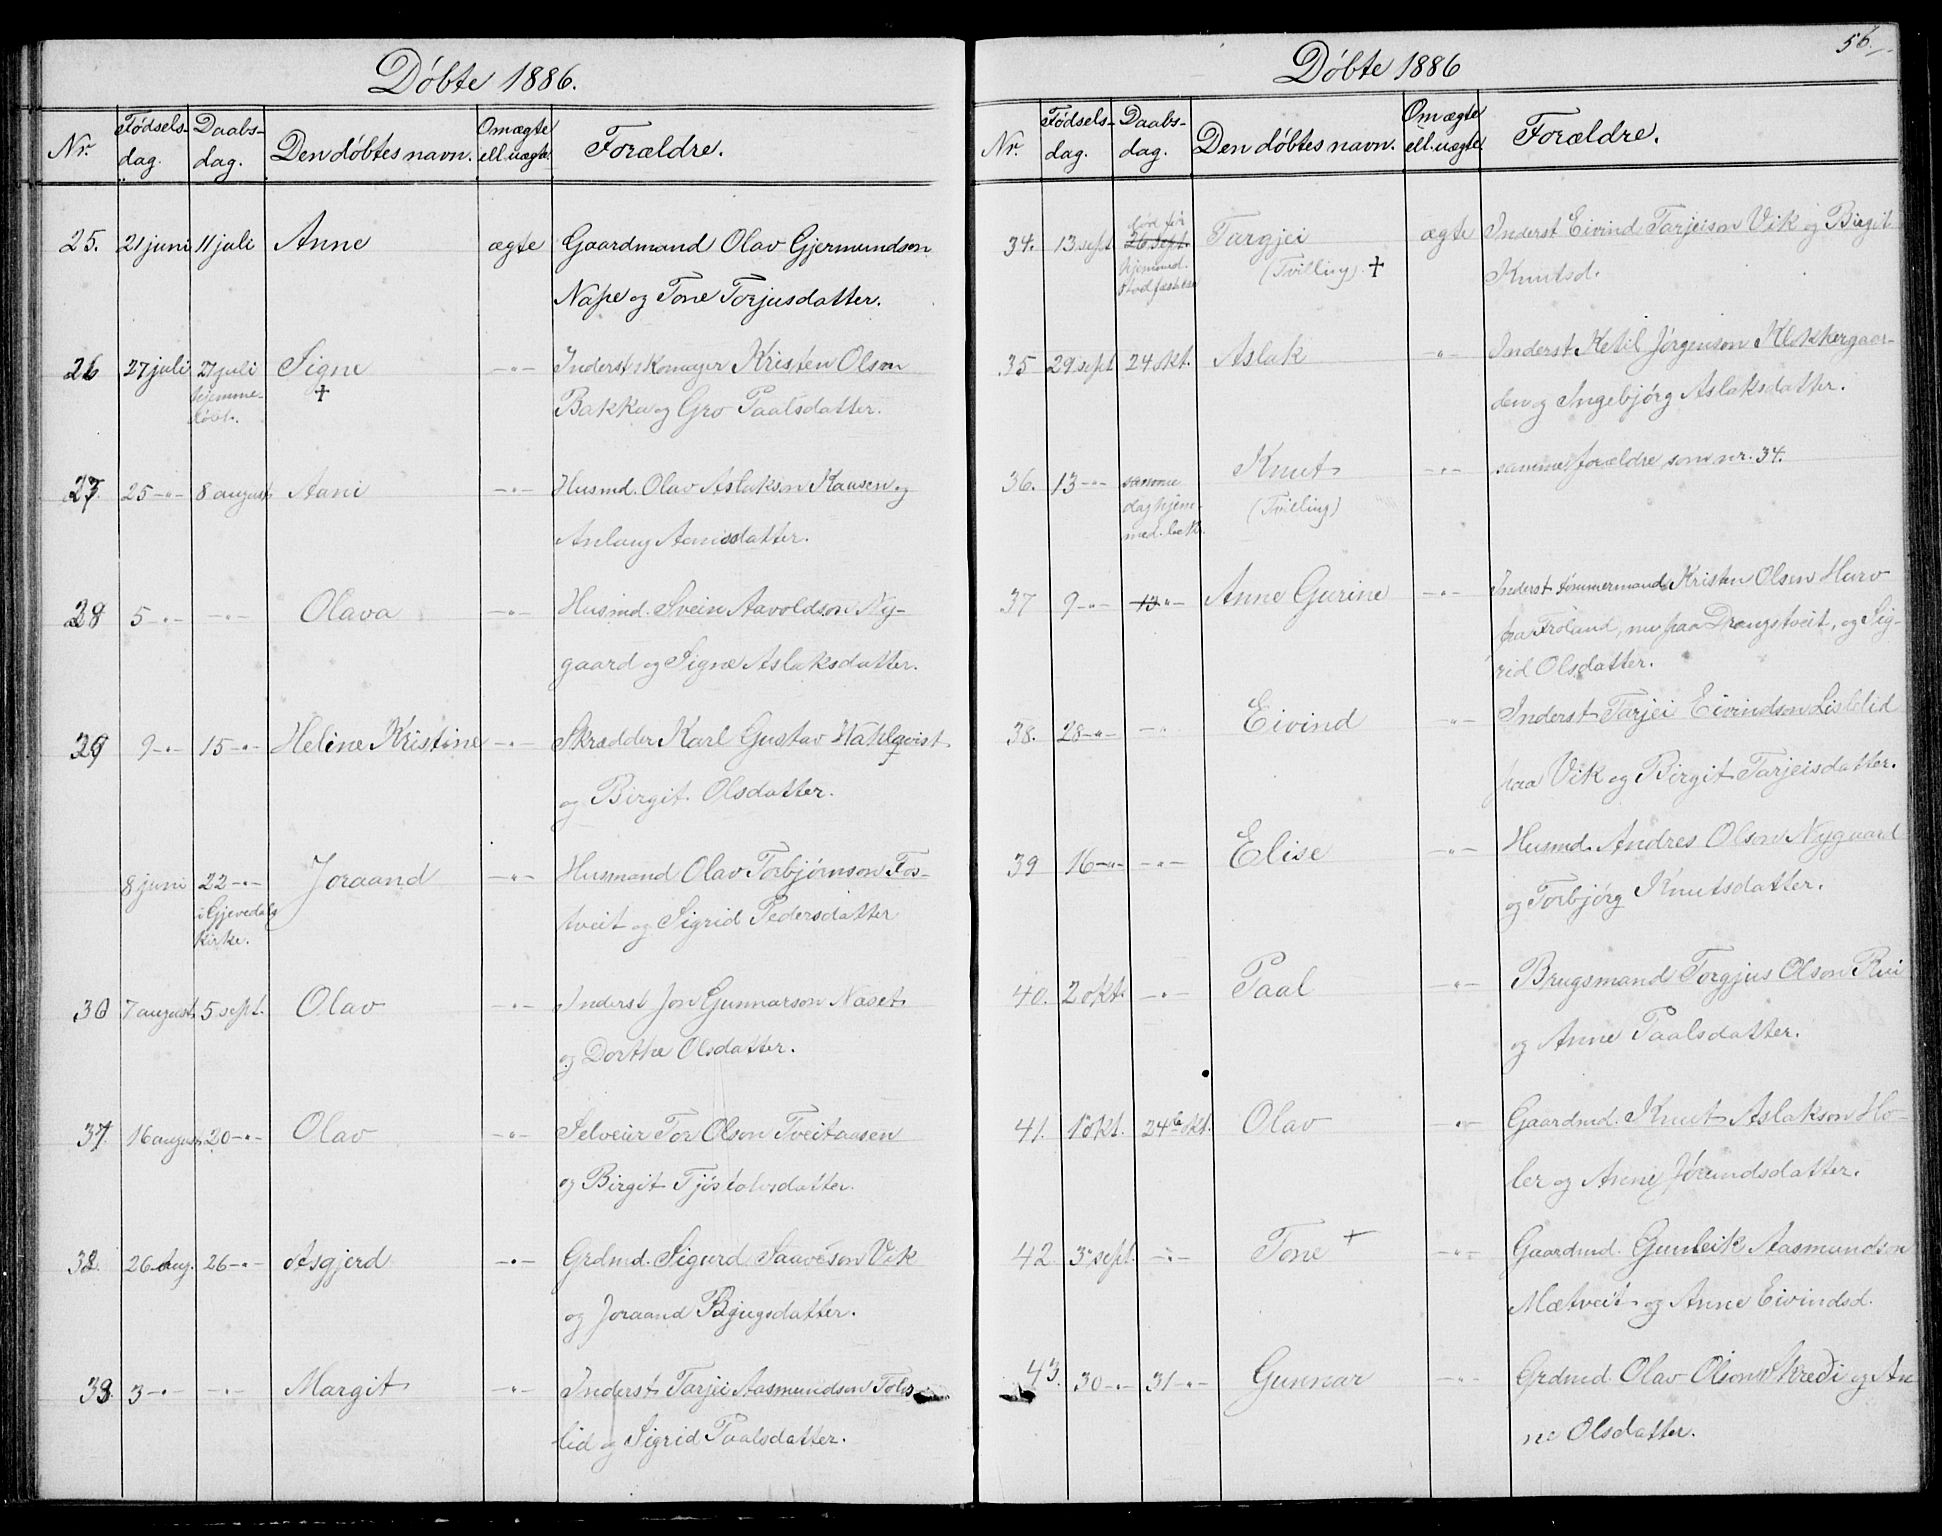 Døbte 1886.
Nr. Fødsels-dag. Daabs-dag. Den døbtes navn. Om ægte ell. uægte Forældre.
25. 21 juni 11 juli Anne ægte Gaardmand Olav Gjermundson
Nape og Tone Torjusdatter.
26 27 juli 27 juli Signe -"- Inderst skomager Kristen Olson
hjemme- † Bakka og Gro Paalsdatter.
døbt.
27. 25 -"- 8 august Aani -"- Husmd. Olav Aslakson Kaasen og
Anlaug Aanisdatter.
28 5 -"- -"- Olava -"- Husmd. Svein Aavoldson Ny-
gaard og Signe Aslaksdatter.
29 9 -"- 15 -"- Heline Kristine -"- Skrædder Karl Gustav Wahlqvist
og Birgit Olsdatter.
8 juni 22 -"- Joraand -"- Husmand Olav Torbjørnson Fos-
i Gjevedals tveit og Sigrid Pedersdatter
kirke.
30 7 august 5 sept. Olav -"- Inderst Jon Gunnarson Naset
og Dorthe Olsdatter.
31 16 august 20 -"- Olav -"- Selveier Tor Olson Tveitaasen
og Birgit Tjøstolvsdatter.
32. 26 Aug. 26 -"- Asgjerd -"- Grdmd. Sigurd Saaveson Vik
og Joraand Bjugsdatter.
33. 3 -"- -"- Margit -"- Inderst Tarjei Aasmundson Tovs-
lid og Sigrid Paalsdatter.
56.
Døbte 1886
Nr. Fødsels-dag. Daabs-dag. Den døbtes navn. Om ægte ell. uægte Forældre.
død før
34. 13 sept 26 sept. Targjei ægte Inderst Eivind Tarjeison Vik og Birgit
hjemmed. (Tvilling) † Knutsd.
stadfæstelse
35 29 sept 24 okt. Aslak -"- Inderst Ketil Jørgenson Klokkergaar-
den og Ingebjørg Aslaksdatter.
36. 13 -"- samme Knut -"- samme forældre som nr. 34.
dag hjem- (Tvilling)
med.
37 9 -"- 13 -"- Anne Gurine -"- Inderst tømmermand Kristen Olsen Hurv
fra Froland, nu paa Drangstveit, og Sig-
rid Olsdatter.
38. 28 -"- -"- Eivind -"- Inderst Tarjei Eivindson Lislelid
paa Vik og Birgit Tarjeisdatter.
39 16 -"- -"- Elise -"- Husmd. Andres Olson Nygaard
og Torbjørg Knutsdatter.
40. 2 okt. -"- Paal -"- Brugsmand Torgjus Olson Rui
og Anne Paalsdatter.
41. 1 okt. 24 okt. Olav -"- Gaardmd. Knut Aslakson Ho-
ler og Anne Jørundsdatter.
42. 3 sept. -"- Tone + -"- Gaardmd. Gunleik Aasmundson
Mætveit og Anne Eivindsd.
43. 30 -"- 31 -"- Gunnar -"- Grdmd. Olav Olson Skredi og An
ne Olsdatter.